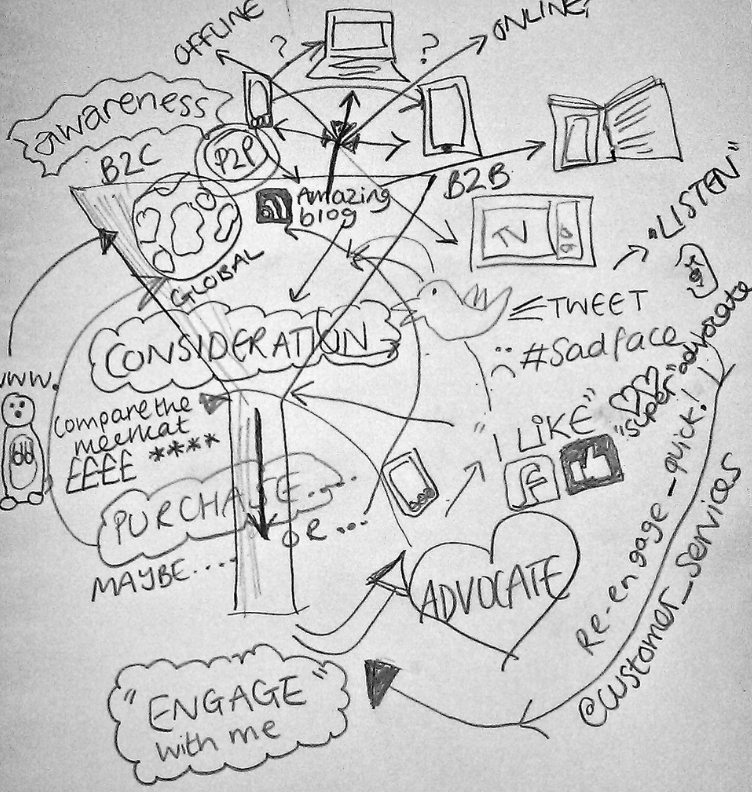 OFFLINE
?
?
ONLINE,
awareness
B2C
P2P
B2B
Amazing
blog
TV
GLOBAL
"LISTEN"
TWEET
CONSIDERATION
#Sadface
WWW.
Compare the
meerkat
££££ ****
"I LIKE"
"super" advocate
f
PURCHASE....
OR ...
MAYBE....
ADVOCATE
Re-engage_quick!
@customer_services
"ENGAGE"
with me